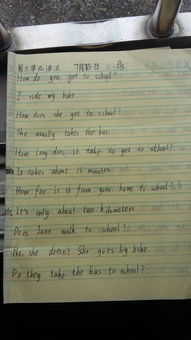 第三单元语法 7月15日 P15
How do you get to school?
I ride my bike
How does she get to school?
She usually takes the bus
How long does it take to get to school?
It takes about 15 minutes
How far is it from your home to school?
It's only about two kilometers.
Does Jane walk to school?
No, she doesn't She goes by bike.
Do they take the bus to school?